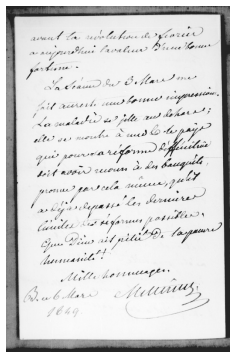 avant la révolution de février
a aujourd'hui la valeur d'une bonne
fortune.
La Séance du 6 Mars me
fait aussi une bonne impression.
La maladie se jette au dehors;
elle se montre à nud & le pays
qui pour sa réforme
doit avoir recours à des banquets,
prouve par cela même, qu'il
a déjà dépassé les dernières
limites des réformes possibles.
Que Dieu ait pitié de la pauvre
humanité!
Mille hommages.
B. ce 6 Mars
1849.